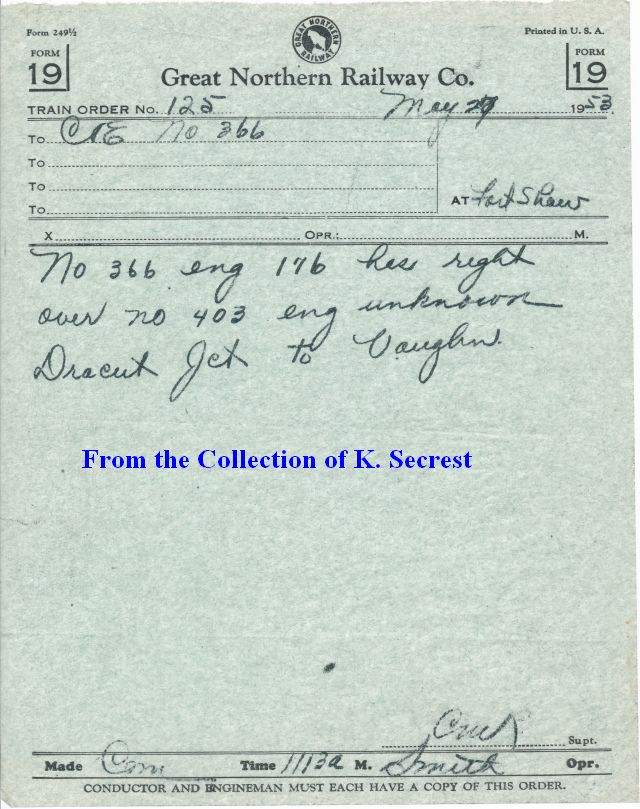 Form 249½
Printed in U. S. A.
GREAT NORTHERN RAILWAY
FORM 19
FORM 19
Great Northern Railway Co.
TRAIN ORDER No. 125 May 27 1953
To C&E No 366
To
To
To
AT Fort Shaw
X OPR.: M.
No 366 eng 176 has right
over no 403 eng unknown
Dracut Jct to Vaughn.
From the Collection of K. Secrest
Supt.
Made Com Time 1113a M. Smith Opr.
CONDUCTOR AND ENGINEMAN MUST EACH HAVE A COPY OF THIS ORDER.